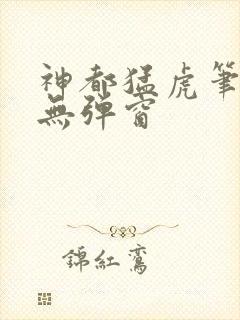 神都猛虎筆
無彈窗
錦紅鸞